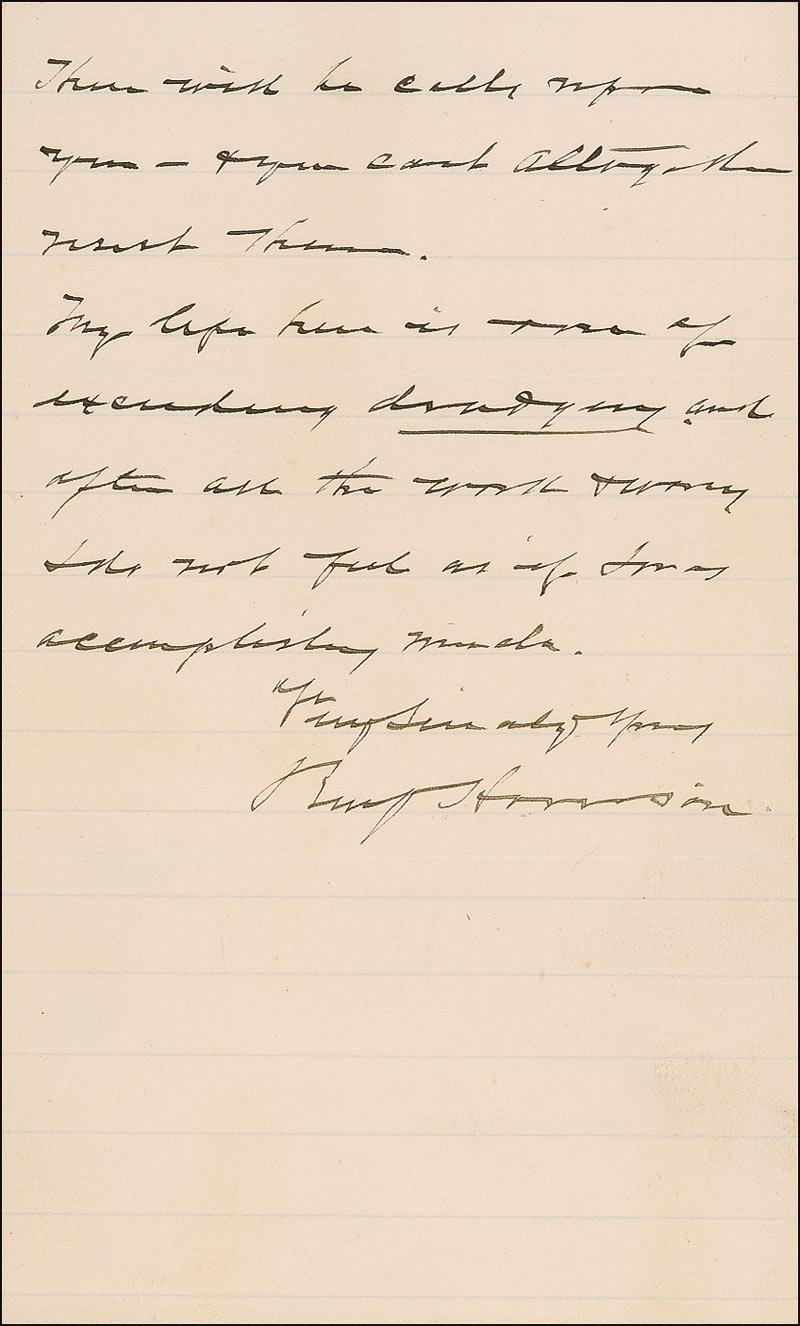 There will be calls upon
you – & you cant altogether
resist them.
My life here is one of
exceeding drudgery and
after all the work & worry
I do not feel as if I was
accomplishing much.
Very Sincerely Yours
Benj Harrison